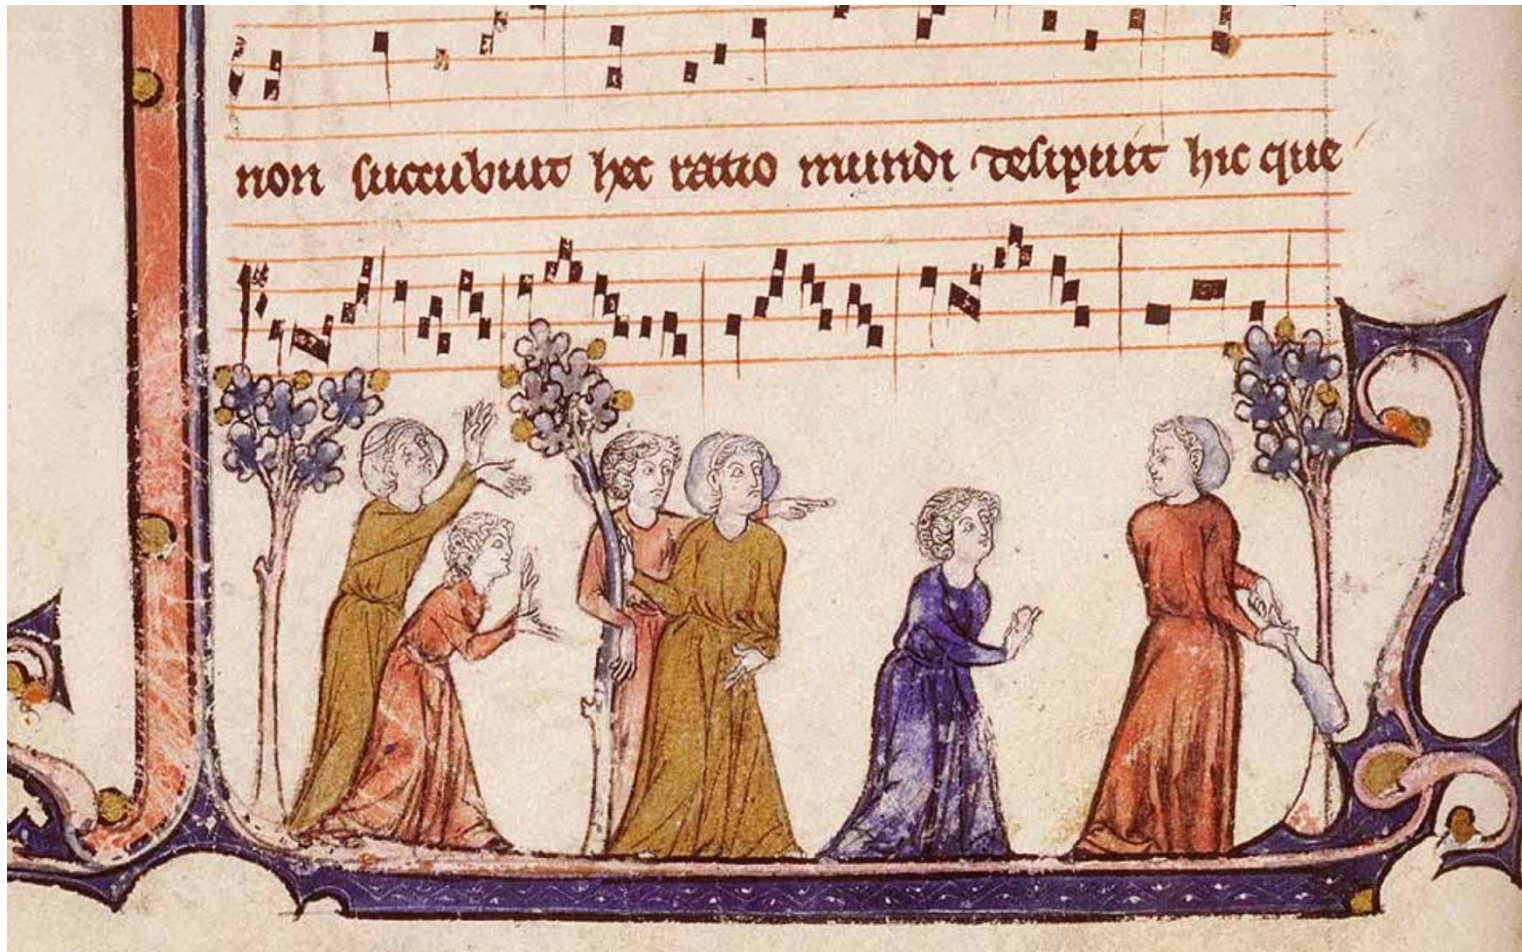 non succubuit hec ratio mundi desipuit hic que